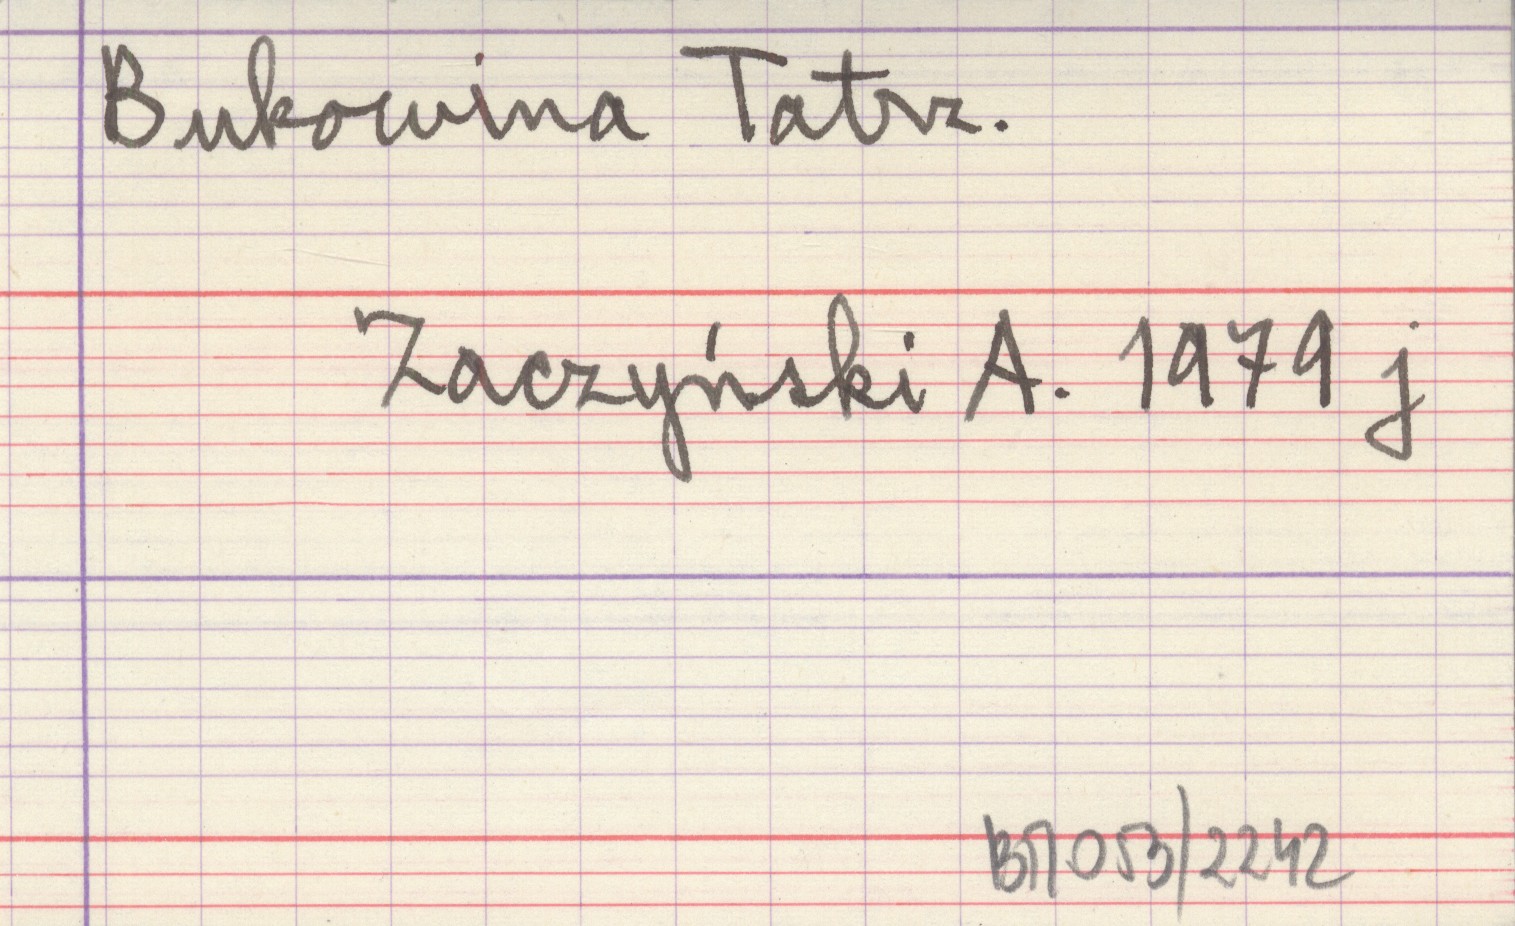 Bukowina Tatrz.
Zaczyński A. 1979 j
053/2242